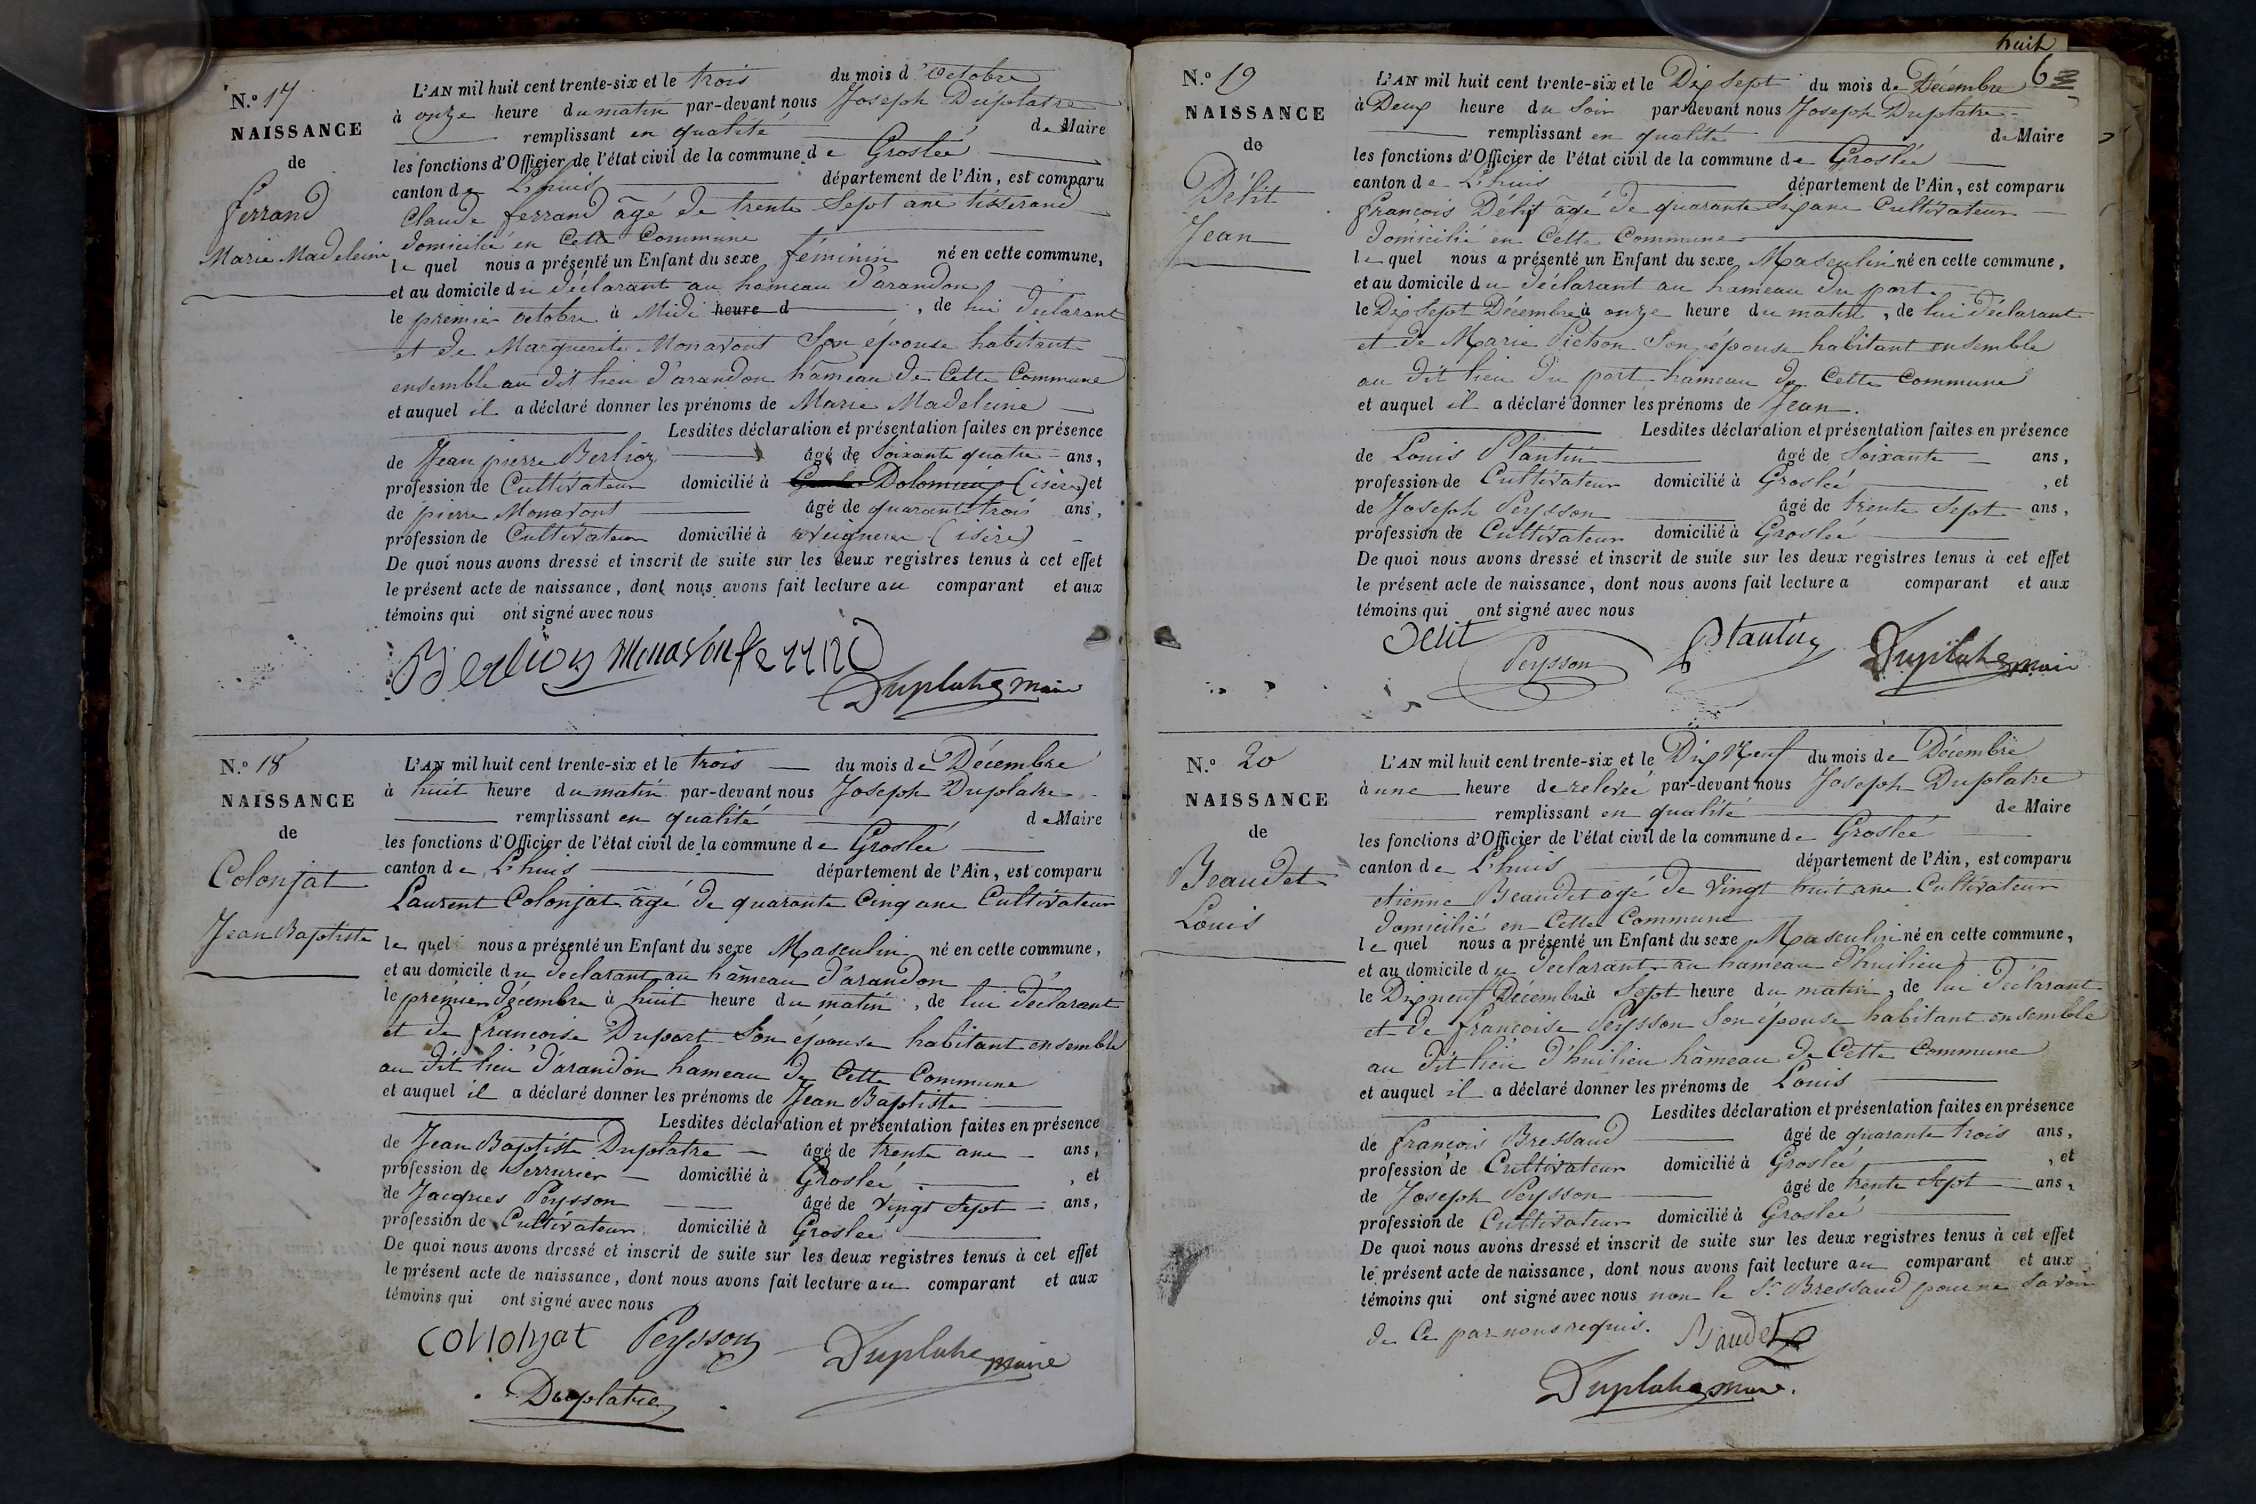 N.º 17
NAISSANCE
de
ferrand
Marie Madeleine
L'AN mil huit cent trente-six et le trois du mois d'Octobre
à onze heure du matin par-devant nous Joseph Duplatre
remplissant en qualité de Maire
les fonctions d'Officier de l'état civil de la commune de Groslée
canton de L'huis département de l'Ain, est comparu
Claude ferrand âgé de trente Sept ans tisserand
domicilié en Cette Commune
le quel nous a présenté un Enfant du sexe féminin né en cette commune,
et au domicile du déclarant au hameau d'arandon
le premier octobre à Midi heure d , de lui déclarant
et de Marguerite Monavont Son épouse habitant
ensemble au dit lieu d'arandon hameau de Cette Commune
et auquel il a déclaré donner les prénoms de Marie Madeleine
Lesdites déclaration et présentation faites en présence
de Jean pierre Berlioz âgé de Soixante quatre ans,
profession de Cultivateur domicilié à Dolomieu (isère) et
de pierre Monavont âgé de quarante trois ans,
profession de Cultivateur domicilié à (isère)
De quoi nous avons dressé et inscrit de suite sur les deux registres tenus à cet effet
le présent acte de naissance, dont nous avons fait lecture au comparant et aux
témoins qui ont signé avec nous
Berlioz Monavon ferrand
Duplatre maire
N.º 18
NAISSANCE
de
Colonjat
Jean Baptiste
L'AN mil huit cent trente-six et le trois du mois de Décembre
à huit heure du matin par-devant nous Joseph Duplatre
remplissant en qualité de Maire
les fonctions d'Officier de l'état civil de la commune de Groslée
canton de L'huis département de l'Ain, est comparu
Laurent Colonjat âgé de quarante Cinq ans Cultivateur
le quel nous a présenté un Enfant du sexe Masculin né en cette commune,
et au domicile du déclarant au hameau d'arandon
le premier décembre à huit heure du matin, de lui déclarant
et de françoise Duport Son épouse habitant ensemble
au dit lieu d'arandon hameau de Cette Commune
et auquel il a déclaré donner les prénoms de Jean Baptiste
Lesdites déclaration et présentation faites en présence
de Jean Baptiste Duplatre âgé de trente ans ans,
profession de Serrurier domicilié à Groslée , et
de Jacques Peysson âgé de Vingt Sept ans,
profession de Cultivateur domicilié à Groslée
De quoi nous avons dressé et inscrit de suite sur les deux registres tenus à cet effet
le présent acte de naissance, dont nous avons fait lecture au comparant et aux
témoins qui ont signé avec nous
colonjat Peysson Duplatre maire
Duplatre
huit
6
N.º 19
NAISSANCE
de
Délit
Jean
L'AN mil huit cent trente-six et le Dix Sept du mois de Décembre
à Deux heure du Soir par-devant nous Joseph Duplatre
remplissant en qualité de Maire
les fonctions d'Officier de l'état civil de la commune de Groslée
canton de L'huis département de l'Ain, est comparu
françois Délit âgé de quarante Six ans Cultivateur
domicilié en Cette Commune
le quel nous a présenté un Enfant du sexe Masculin né en cette commune,
et au domicile du déclarant au hameau du port
le Dix Sept Décembre à onze heure du matin, de lui déclarant
et de Marie Pichon Son épouse habitant ensemble
au dit lieu du port hameau de Cette Commune
et auquel il a déclaré donner les prénoms de Jean.
Lesdites déclaration et présentation faites en présence
de Louis Plantin âgé de Soixante ans,
profession de Cultivateur domicilié à Groslée , et
de Joseph Peysson âgé de trente Sept ans,
profession de Cultivateur domicilié à Groslée
De quoi nous avons dressé et inscrit de suite sur les deux registres tenus à cet effet
le présent acte de naissance, dont nous avons fait lecture a comparant et aux
témoins qui ont signé avec nous
Delit Peysson Plantin Duplatre maire
N.º 20
NAISSANCE
de
Beaudet
Louis
L'AN mil huit cent trente-six et le Dix Neuf du mois de Décembre
à une heure de relevée par-devant nous Joseph Duplatre
remplissant en qualité de Maire
les fonctions d'Officier de l'état civil de la commune de Groslée
canton de L'huis département de l'Ain, est comparu
etienne Beaudet âgé de Vingt huit ans Cultivateur
domicilié en Cette Commune
le quel nous a présenté un Enfant du sexe Masculin né en cette commune,
et au domicile du déclarant au hameau d'huilieu
le Dix neuf Décembre à Sept heure du matin, de lui déclarant
et de françoise Peysson Son épouse habitant ensemble
au dit lieu d'huilieu hameau de Cette Commune
et auquel il a déclaré donner les prénoms de Louis
Lesdites déclaration et présentation faites en présence
de françois Bressaud âgé de quarante trois ans,
profession de Cultivateur domicilié à Groslée , et
de Joseph Peysson âgé de trente Sept ans,
profession de Cultivateur domicilié à Groslée
De quoi nous avons dressé et inscrit de suite sur les deux registres tenus à cet effet
le présent acte de naissance, dont nous avons fait lecture au comparant et aux
témoins qui ont signé avec nous non le Sr Bressaud pour ne Savoir
de Ce par nous requis. Baudet
Duplatre maire.